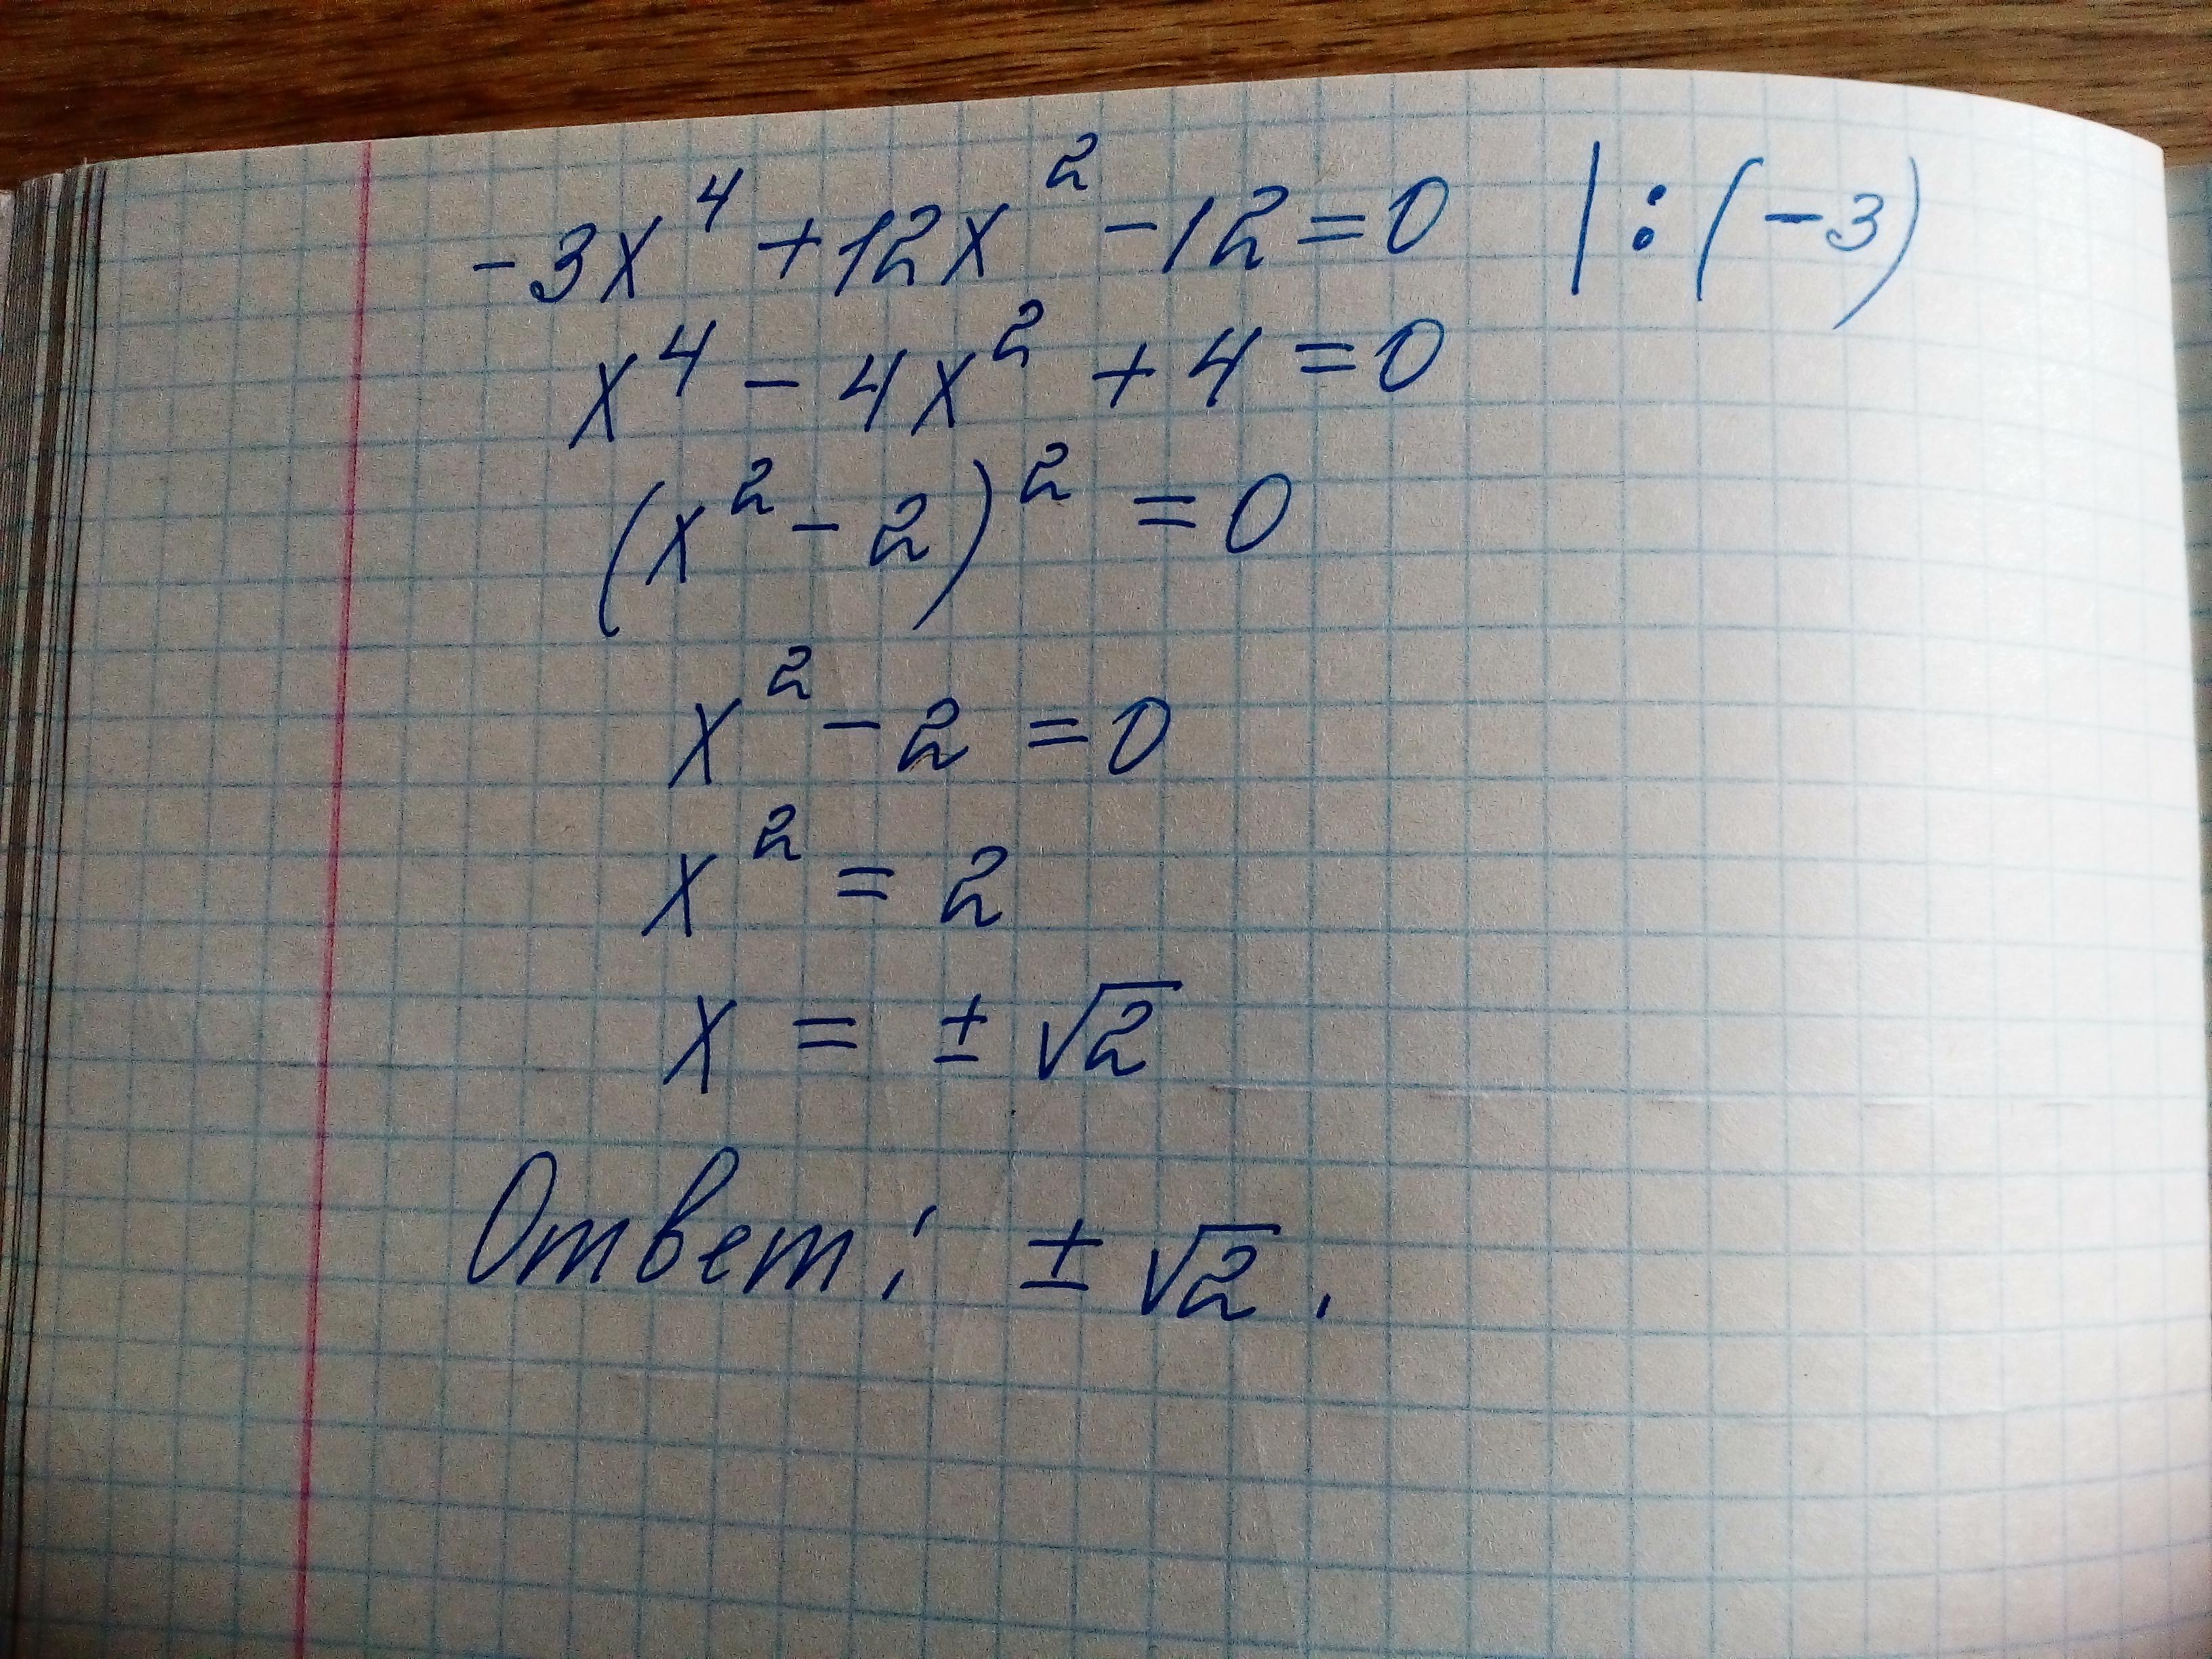 -3x⁴ + 12x² - 12 = 0 | : (-3)
x⁴ - 4x² + 4 = 0
(x² - 2)² = 0
x² - 2 = 0
x² = 2
x = ± √2
Ответ: ± √2.